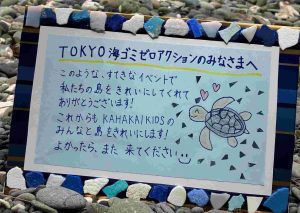 TOKYO海ゴミゼロアクションのみなさまへ
このような、すてきなイベントで
私たちの島をきれいにしてくれて
ありがとうございます!
これからも KAHAKAI KIDSの
みんなと島をきれいにします!
よかったら、また 来てください